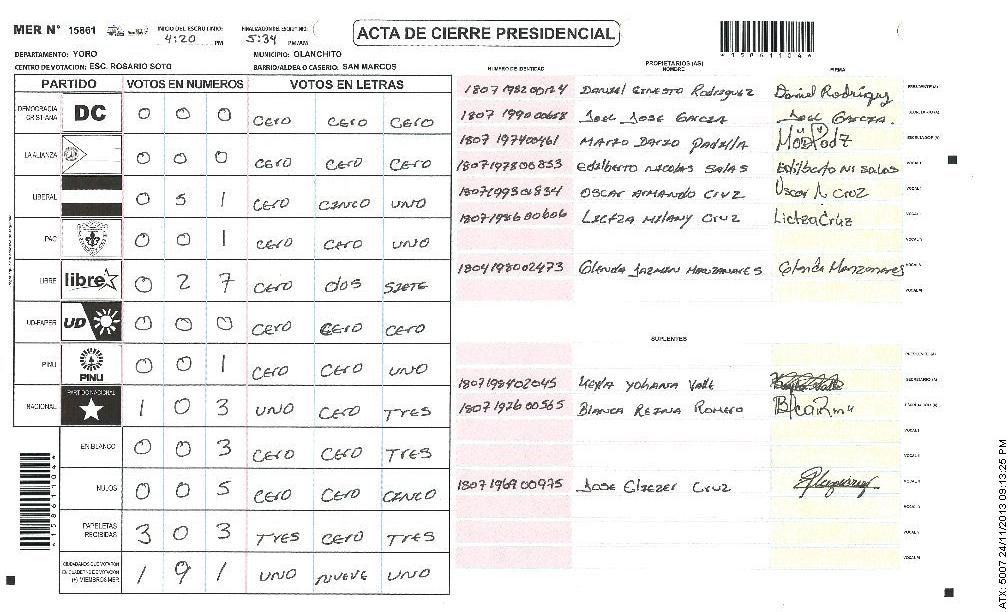 MER N° 15861 INICIO DEL ESCRUTINIO: 4:20 PM FINALIZACION DE ESCRUTINIO: 5:34 PM/AM ACTA DE CIERRE PRESIDENCIAL
*15861104*
DEPARTAMENTO: YORO MUNICIPIO: OLANCHITO
CENTRO DE VOTACION: ESC. ROSARIO SOTO BARRIO/ALDEA O CASERIO: SAN MARCOS
PARTIDO VOTOS EN NUMEROS VOTOS EN LETRAS
DEMOCRACIA CRISTIANA DC 0 0 0 CERO CERO CERO
LA ALIANZA 0 0 0 CERO CERO CERO
LIBERAL 0 5 1 CERO CINCO UNO
PAC 0 0 1 CERO CERO UNO
LIBRE libre 0 2 7 CERO DOS SIETE
UD-FAPER UD 0 0 0 CERO CERO CERO
PINU PINU 0 0 1 CERO CERO UNO
NACIONAL PARTIDO NACIONAL 1 0 3 UNO CERO TRES
EN BLANCO 0 0 3 CERO CERO TRES
NULOS 0 0 5 CERO CERO CINCO
PAPELETAS RECIBIDAS 3 0 3 TRES CERO TRES
CIUDADANOS QUE VOTARON EN CUADERNO DE VOTACION (+) MIEMBROS MER 1 9 1 UNO NUEVE UNO
*15861104*
PROPIETARIOS (AS)
NUMERO DE IDENTIDAD NOMBRE FIRMA
1807 1982 00124 DANIEL ERNESTO RODRIGUEZ Daniel Rodríguez PRESIDENTE (A)
1807 1990 00658 JOEL JOSE GARCIA JOEL GARCIA. SECRETARIO (A)
1807 1974 00461 MARIO DARIO PADILLA ESCRUTADOR (A)
1807 1978 00833 Edilberto NICOLAS SALAS Edilberto Ni Salas VOCAL I
1807 1993 01834 OSCAR ARMANDO CRUZ Oscar A Cruz VOCAL II
1807 1986 00606 LICTZA MILANY CRUZ Lictza Cruz VOCAL III
VOCAL IV
1804 1980 02473 GLENDA JAZMIN MANZANARES Glenda Manzanares VOCAL V
VOCAL VI
SUPLENTES
PRESIDENTE (A)
1807 1984 02045 Keyla YOHANA Valle SECRETARIO (A)
1807 1976 00565 BLANCA REINA ROMERO ESCRUTADOR (A)
VOCAL I
VOCAL II
1807 1969 00975 JOSE ELIEZER CRUZ VOCAL III
VOCAL IV
VOCAL V
VOCAL VI
ATX: 5007 24/11/2013 09:13:25 PM